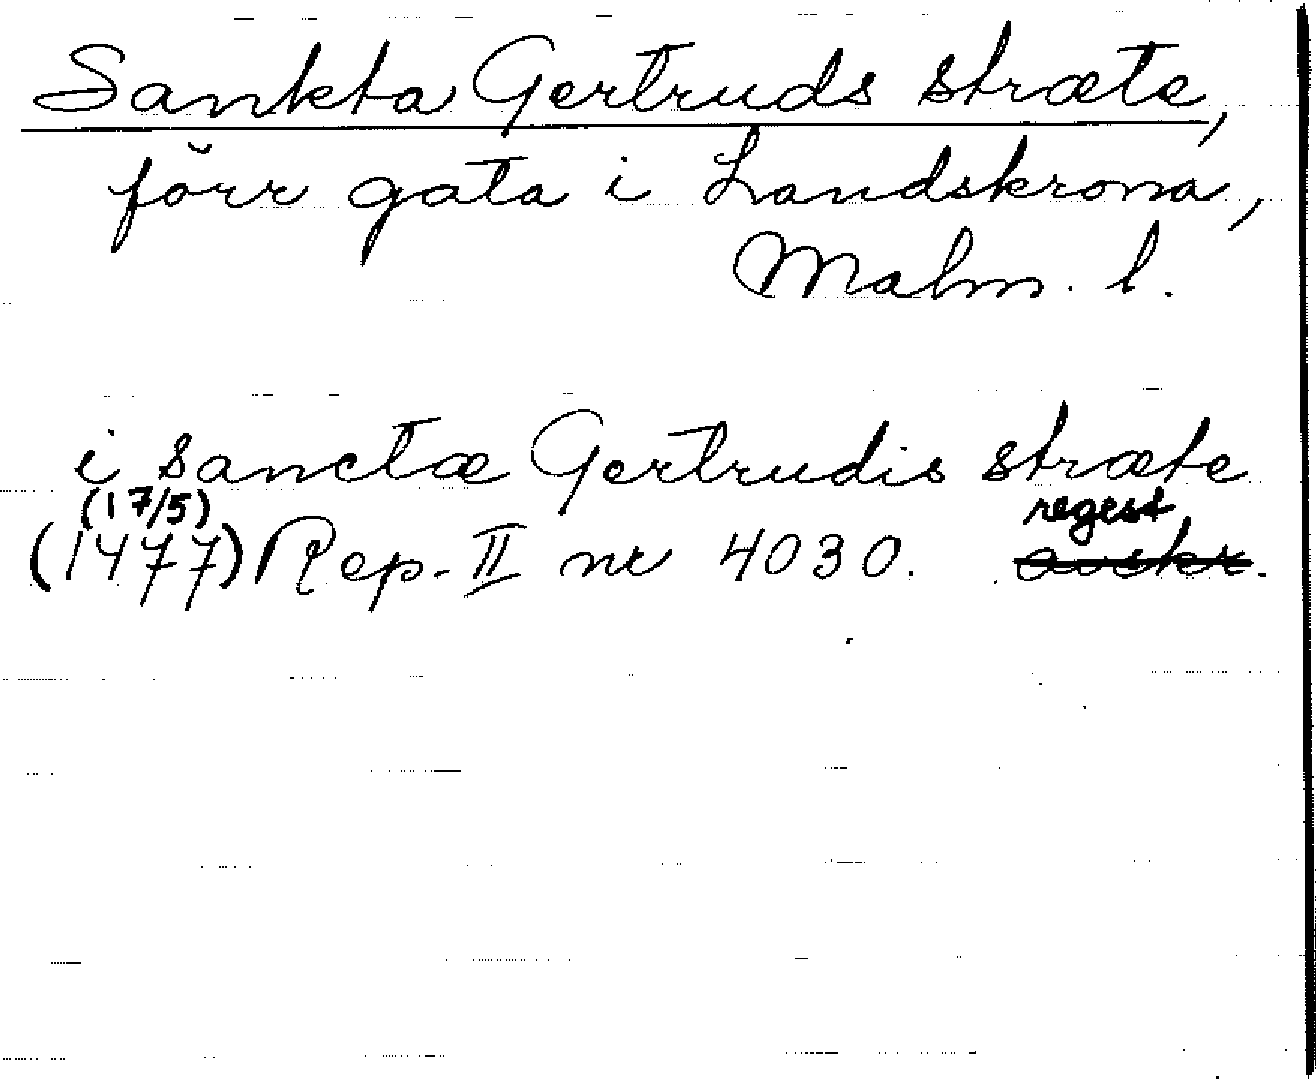 Sankta Gertruds stræte,
förr gata i Landskrona,
Malm. l.
i sanctæ Gertrudis stræte
(17/5) regest
(1477) Rep. II nr 4030. avskr.